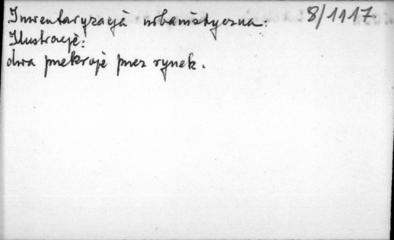 Inwentaryzacja urbanistyczna: 8/1117
Ilustracje:
dwa przekroje przez rynek.